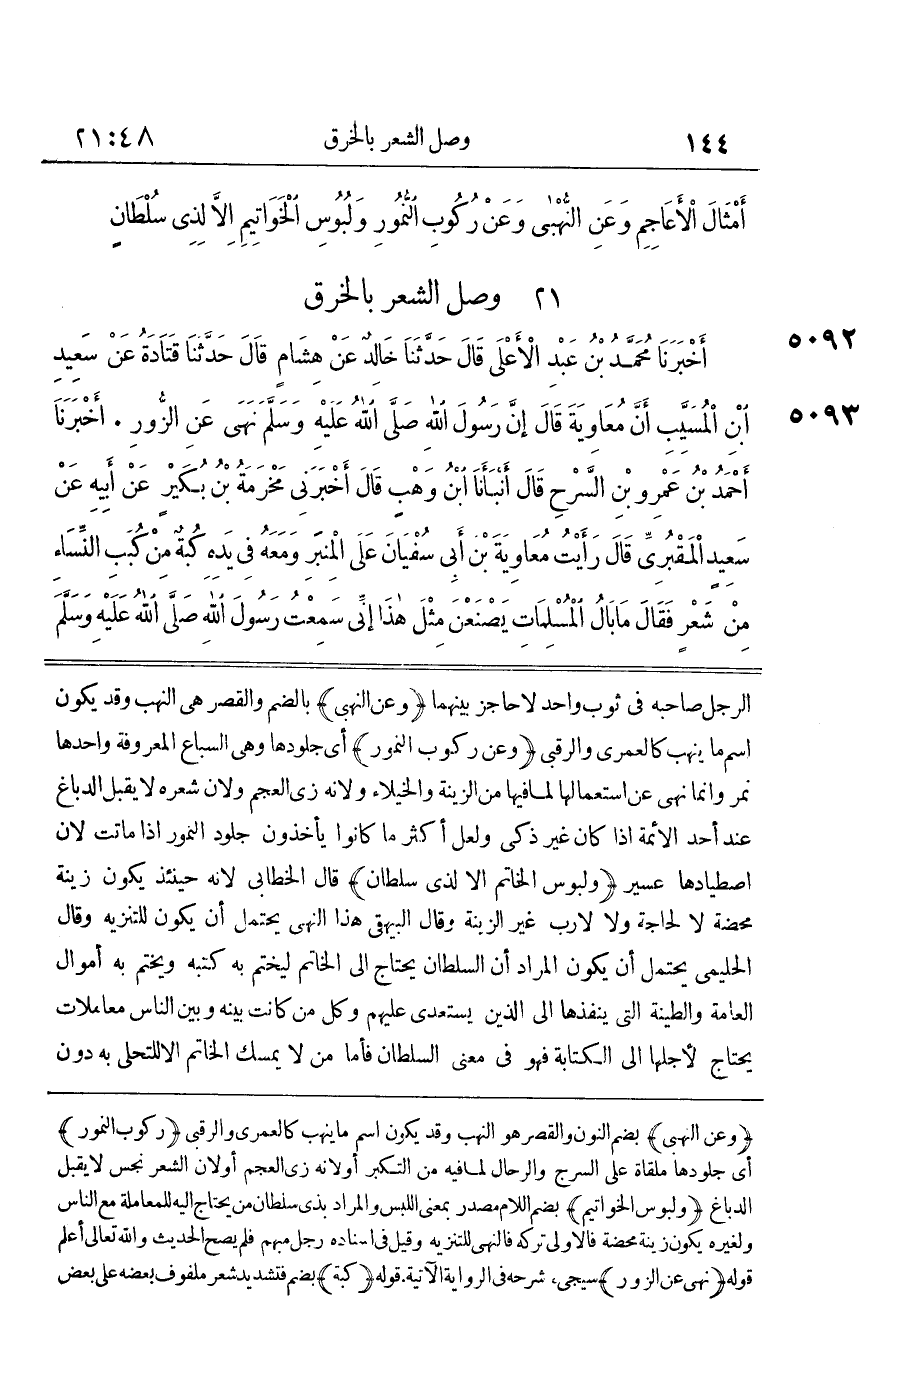 ١٤٤ وصل الشعر بالخرق ٢١:٤٨
أَمْثَالَ الْأَعَاجِمِ وَعَنِ النُّهْبَى وَعَنْ رُكُوبِ النُّمُورِ وَلُبُوسِ الْخَوَاتِيمِ إِلَّا لِذِى سُلْطَانٍ
٢١ وصل الشعر بالخرق
٥٠٩٢ أَخْبَرَنَا مُحَمَّدُ بْنُ عَبْدِ الْأَعْلَى قَالَ حَدَّثَنَا خَالِدٌ عَنْ هِشَامٍ قَالَ حَدَّثَنَا قَتَادَةُ عَنْ سَعِيدِ
٥٠٩٣ ابْنِ الْمُسَيَّبِ أَنَّ مُعَاوِيَةَ قَالَ إِنَّ رَسُولَ اللهِ صَلَّى اللهُ عَلَيْهِ وَسَلَّمَ نَهَى عَنِ الزُّورِ . أَخْبَرَنَا
أَحْمَدُ بْنُ عَمْرِو بْنِ السَّرْحِ قَالَ أَنْبَأَنَا ابْنُ وَهْبٍ قَالَ أَخْبَرَنِى مَخْرَمَةُ بْنُ بُكَيْرٍ عَنْ أَبِيهِ عَنْ
سَعِيدٍ الْمَقْبُرِىِّ قَالَ رَأَيْتُ مُعَاوِيَةَ بْنَ أَبِى سُفْيَانَ عَلَى الْمِنْبَرِ وَمَعَهُ فِى يَدِهِ كُبَّةٌ مِنْ كُبَبِ النِّسَاءِ
مِنْ شَعْرٍ فَقَالَ مَابَالُ الْمُسْلِمَاتِ يَصْنَعْنَ مِثْلَ هٰذَا إِنِّى سَمِعْتُ رَسُولَ اللهِ صَلَّى اللهُ عَلَيْهِ وَسَلَّمَ
الرجل صاحبه فى ثوب واحد لا حاجز بينهما ﴿وعن النهبى﴾ بالضم والقصر هى النهب وقد يكون
اسم ما ينهب كالعمرى والرقبى ﴿وعن ركوب النمور﴾ أى جلودها وهى السباع المعروفة واحدها
نمر وانما نهى عن استعمالها لمافيها من الزينة والخيلاء ولانه زى العجم ولان شعره لا يقبل الدباغ
عند أحد الأئمة اذا كان غير ذكى ولعل أكثر ما كانوا يأخذون جلود النمور اذا ماتت لان
اصطيادها عسير ﴿ولبوس الخاتم الا لذى سلطان﴾ قال الخطابى لانه حينئذ يكون زينة
محضة لا لحاجة ولا لارب غير الزينة وقال البيهقى هذا النهى يحتمل أن يكون للتنزيه وقال
الحليمى يحتمل أن يكون المراد أن السلطان يحتاج الى الخاتم ليختم به كتبه ويختم به أموال
العامة والطينة التى ينفذها الى الذين يستعدى عليهم وكل من كانت بينه وبين الناس معاملات
يحتاج لأجلها الى الكتابة فهو فى معنى السلطان فأما من لا يمسك الخاتم الا للتحلى به دون
﴿وعن النهبى﴾ بضم النون والقصر هو النهب وقد يكون اسم ماينهب كالعمرى والرقبى ﴿ركوب النمور﴾
أى جلودها ملقاة على السرج والرحال لمافيه من التكبر أولانه زى العجم أولان الشعر نجس لا يقبل
الدباغ ﴿ولبوس الخواتيم﴾ بضم اللام مصدر بمعنى اللبس والمراد بذى سلطان من يحتاج اليه للمعاملة مع الناس
ولغيره يكون زينة محضة فالاولى تركه فالنهى للتنزيه وقيل فى اسناده رجل مبهم فلم يصح الحديث والله تعالى أعلم
قوله ﴿نهى عن الزور﴾ سيجىء شرحه فى الرواية الآتية. قوله ﴿كبة﴾ بضم فتشديد شعر ملفوف بعضه على بعض